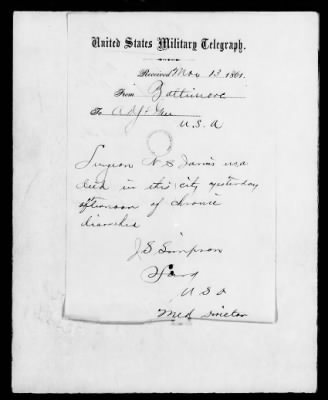 United States Military Telegraph.
Received Nov 13 1861.
From Baltimore
To Adjt Gen
U.S.A
Surgeon N S Jarvis usa
died in this city yesterday
afternoon of chronic
diarrhea
J S Simpson
Surg
U S A
Med Director